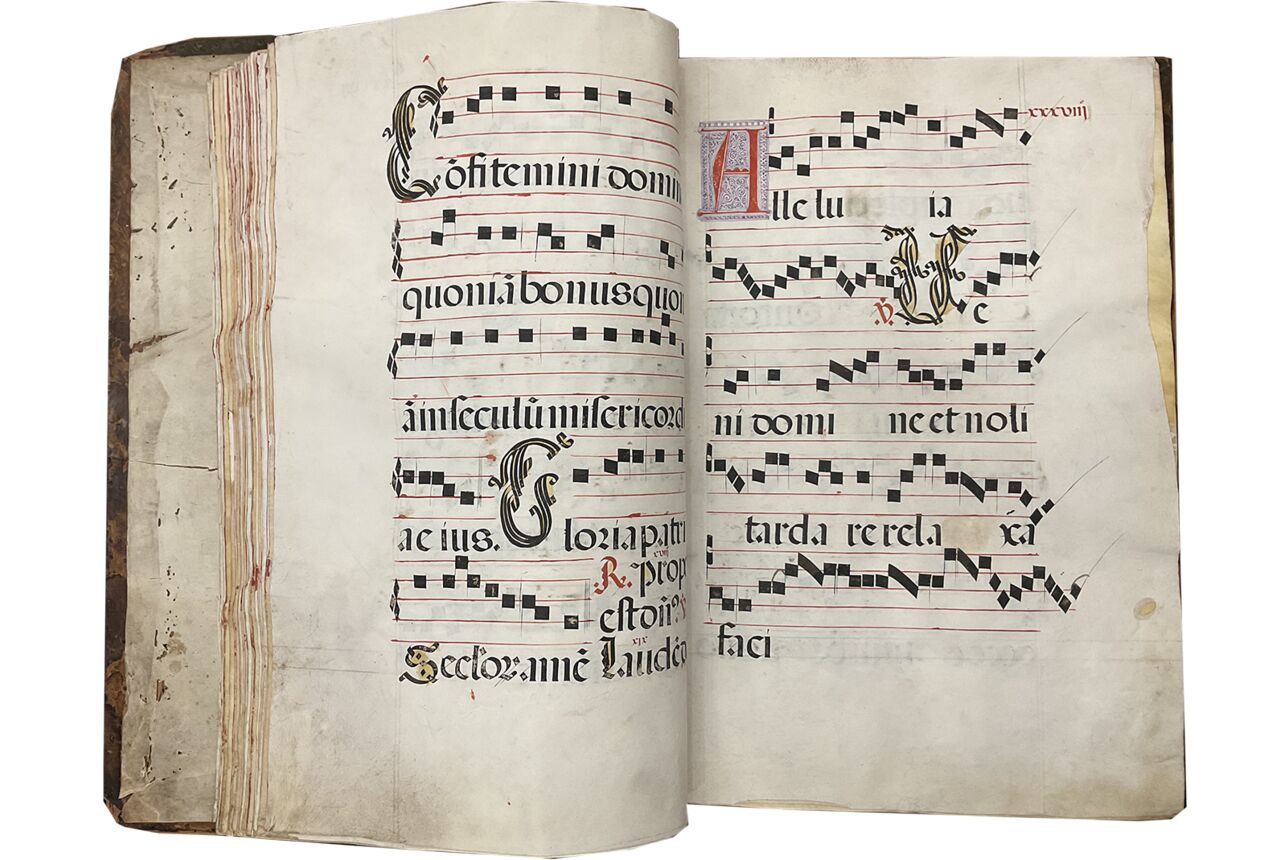 Cõfitemini domin
quoniã bonus quon
ã in seculũ misericord
ae ius. Gloria patri
xviij
R. prop
est dñs
xix
Seclor. amẽ Laudẽ
xxxviij
Alle lu ia
℣. Ve
ni domi ne et noli
tarda re rela xa
faci